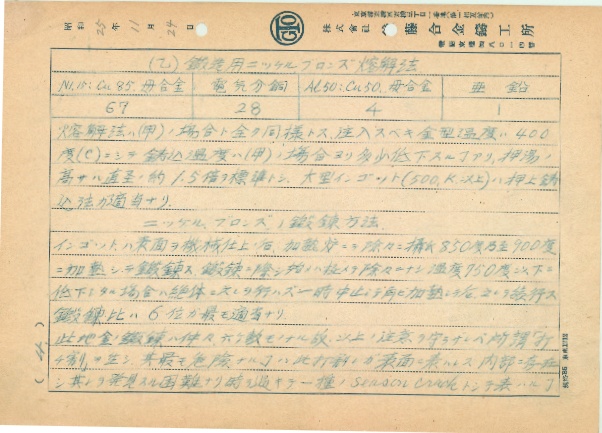 昭和 25 年 11 月 24 日
GTO
株式会社 藤合金鑄工所
(乙) 鍛造用ニッケルブロンズ熔解法
Ni.15:Cu 85.母合金 電気分銅 Al.50:Cu50.母合金 亜鉛
67 28 4 1
熔解法ハ(甲)ノ場合ト全ク同様トス、注入スベキ金型温度ハ400
度(C)ニシテ鋳込温度ハ(甲)ノ場合ヨリ多少低下スルヿアリ,押湯ノ
高サハ直径ノ約1.5倍ヲ標準トシ、大型インゴット(500.K.以上)ハ押上鋳
込法が適当ナリ.
ニッケル、ブロンズノ鍛錬方法.
インゴットハ表面ヲ機械仕上ノ后、加熱炉ニテ除々ニ摂氏850度乃至900度
ニ加熱シテ鍛錬ス 鍛錬ニ際シ始ハ極メテ除々ニナシ温度750度以下ニ
低下シタル場合ハ絶体ニ之レヲ行ハズ一時中止シテ再ビ加熱シテ后之レヲ続行ス
鍛錬比ハ6位が最モ適当ナリ
此地金ノ鍛錬ハ仲々デリケートナル故、以上ノ注意ヲ守ラザレバ所謂「打
割」ヲ生ジ其最モ危険ナルヿハ此打割レが表面ニ表ハレズ内部ニ存在
シ其レヲ発見スル困難ナリ時ヲ過ギテ一種ノ season crackトシテ表ハルヿ